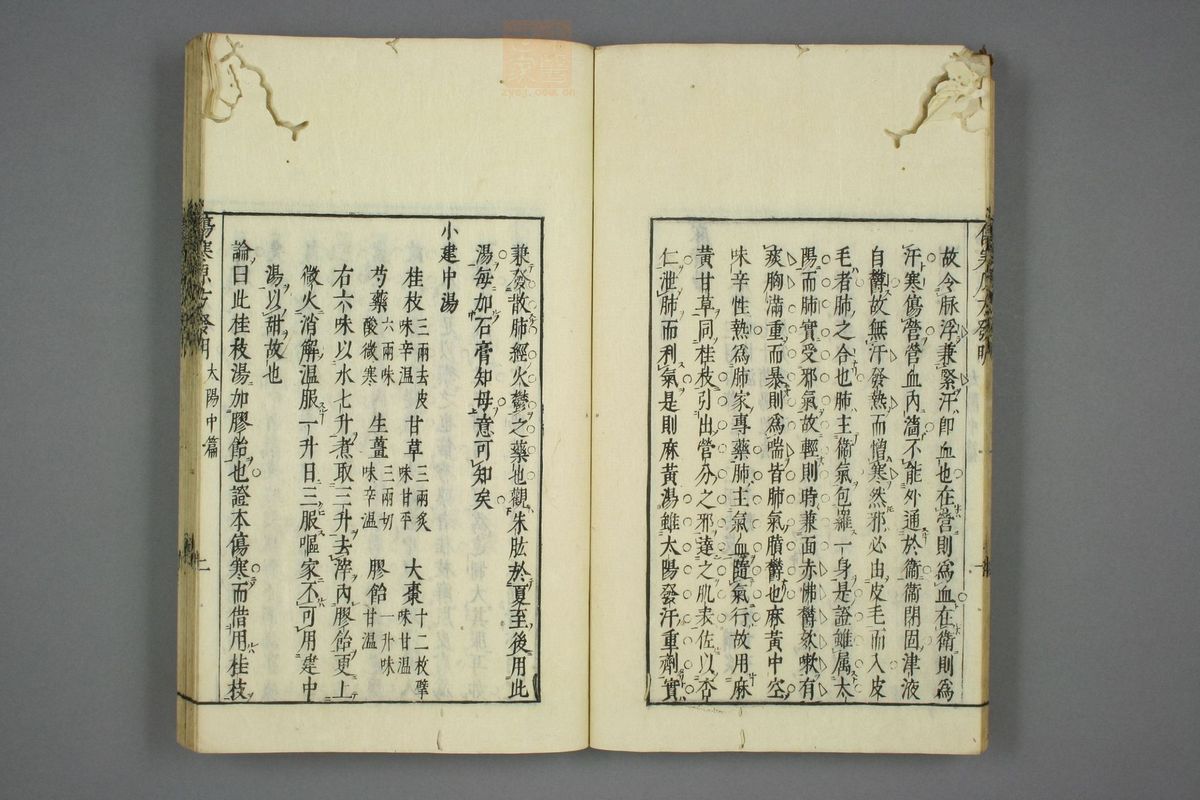 故令脉浮兼緊汗即血也在營則爲血在衛則爲
汗寒傷營營血内濇不能外通於衛衛閉固津液
自鬱故無汗發熱而憎寒然邪必由皮毛而入皮
毛者肺之合也肺主衛氣包羅一身是證雖属太
陽而肺實受邪氣故輕則時兼面赤怫鬱欬嗽有
痰胸滿重而暴則爲喘皆肺氣膹鬱也麻黄中空
味辛性熱爲肺家專藥肺主氣血隨氣行故用麻
黄甘草同桂枝引出營分之邪達之肌表佐以杏
仁泄肺而利氣是則麻黄湯雖太陽發汗重劑實
兼發散肺經火鬱之藥也觀朱肱於夏至後用此
湯毎加石膏知母意可知矣
小建中湯
桂枝三兩去皮味辛温 甘草三兩炙味甘平 大棗十二枚擘味甘温
芍藥六兩味酸微寒 生薑三兩切味辛温 膠飴一升味甘温
右六味以水七升煮取三升去滓内膠飴更上
微火消解温服一升日三服嘔家不可用建中
湯以甜故也
論曰此桂枝湯加膠飴也證本傷寒而借用桂枝
傷寒 方發明 太陽中篇
zycj.com.cn